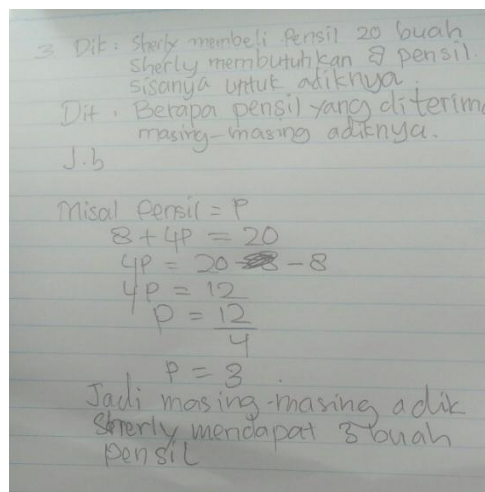 3. Dik : Sherly membeli Pensil 20 buah
Sherly membutuhkan 8 pensil.
sisanya untuk adiknya.
Dit . Berapa pensil yang diterima
masing-masing adiknya.
J.b
Misal Pensil = P
8 + 4P = 20
4P = 20 - 8
4P = 12
P = 12
4
P = 3 .
Jadi masing-masing adik
Sherly mendapat 3 buah
pensil